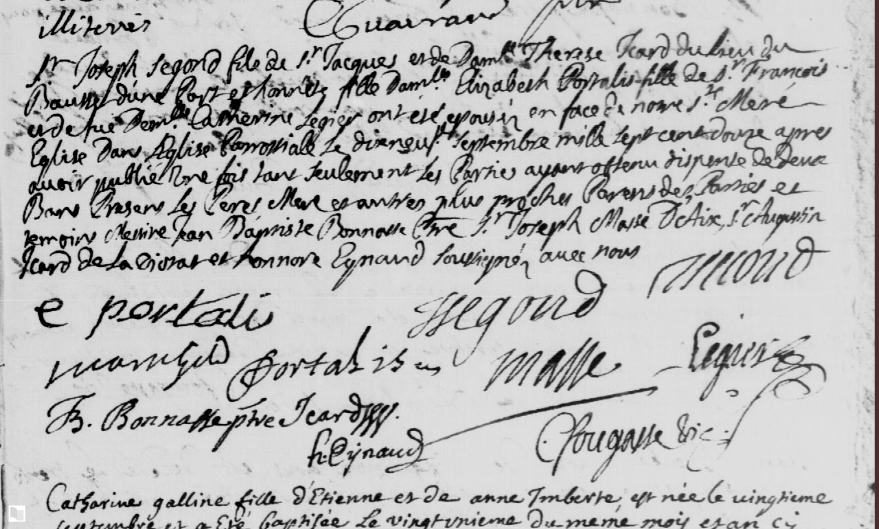 illiterés
Sr Joseph Segond fils de Sr Jacques et de Damlle Therese Icard du lieu du
Bausset d'une Part et honneste fille Damlle Elizabeth Portalis fille de Sr François
et de fue Demlle Catherine Legier ont eté epousés en face de notre Ste Mere
Eglise Dans L'Eglise Parroissiale Le dixneuf Septembre mille sept cent douze apres
avoir publié Une fois tant seulement Les Parties ayant obtenu dispense de deux
Bans Presens Les Peres Mere et autres plus proches Parens des Parties et
temoins Messire Jean Baptiste Bonnasse Ptre Sr Joseph Masse D'Aix, Sr Augustin
Icard de La Ciotat et honnore Eynaud Soussignés avec nous
e portalis
Segond
Segond
Portalis
masse
Legier
B. Bonnasse ptre Icard
h. Eynaud
Fougasse vic.
Catharine galline fille d'Etienne et de anne Imberte est née le vingtieme
septembre et a été baptisée Le vingt unieme du meme mois et an